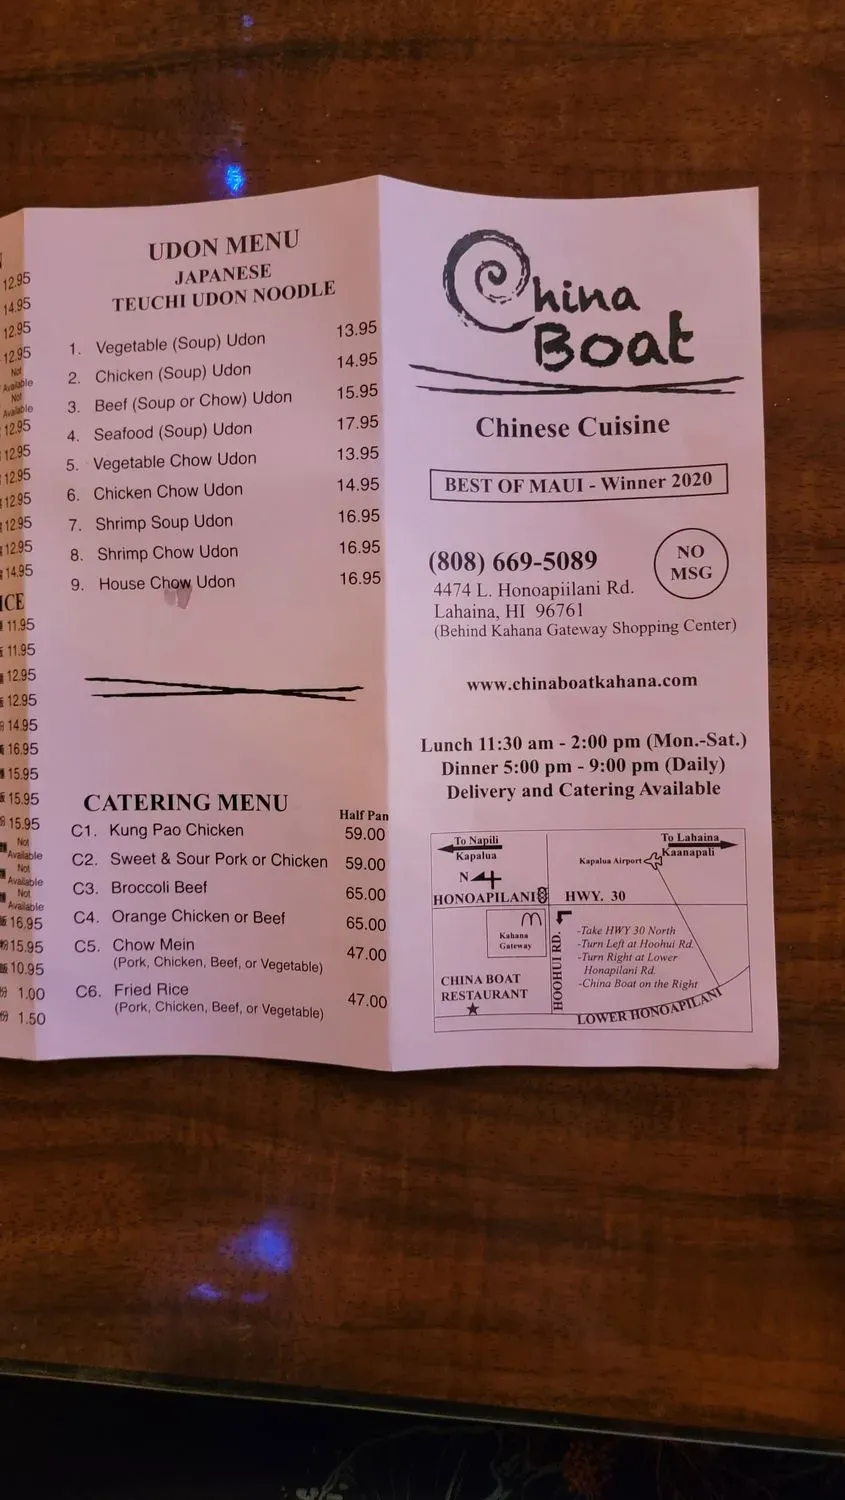 12.95
14.95
12.95
12.95
Not
Available
Not
Available
12.95
12.95
12.95
12.95
12.95
12.95
14.95
ICE
11.95
11.95
12.95
12.95
14.95
16.95
15.95
15.95
15.95
Not
Available
Not
Available
Not
Available
16.95
15.95
10.95
1.00
1.50
UDON MENU
JAPANESE
TEUCHI UDON NOODLE
1. Vegetable (Soup) Udon 13.95
2. Chicken (Soup) Udon 14.95
3. Beef (Soup or Chow) Udon 15.95
4. Seafood (Soup) Udon 17.95
5. Vegetable Chow Udon 13.95
6. Chicken Chow Udon 14.95
7. Shrimp Soup Udon 16.95
8. Shrimp Chow Udon 16.95
9. House Chow Udon 16.95
CATERING MENU
Half Pan
C1. Kung Pao Chicken 59.00
C2. Sweet & Sour Pork or Chicken 59.00
C3. Broccoli Beef 65.00
C4. Orange Chicken or Beef 65.00
C5. Chow Mein 47.00
(Pork, Chicken, Beef, or Vegetable)
C6. Fried Rice 47.00
(Pork, Chicken, Beef, or Vegetable)
China
Boat
Chinese Cuisine
BEST OF MAUI - Winner 2020
(808) 669-5089
NO
MSG
4474 L. Honoapiilani Rd.
Lahaina, HI 96761
(Behind Kahana Gateway Shopping Center)
www.chinaboatkahana.com
Lunch 11:30 am - 2:00 pm (Mon.-Sat.)
Dinner 5:00 pm - 9:00 pm (Daily)
Delivery and Catering Available
To Napili
Kapalua
To Lahaina
Kaanapali
Kapalua Airport
N
HONOAPIILANI HWY. 30
Kahana
Gateway
HOOHUI RD.
-Take HWY 30 North
-Turn Left at Hoohui Rd.
-Turn Right at Lower
Honapilani Rd.
-China Boat on the Right
CHINA BOAT
RESTAURANT
LOWER HONOAPILANI